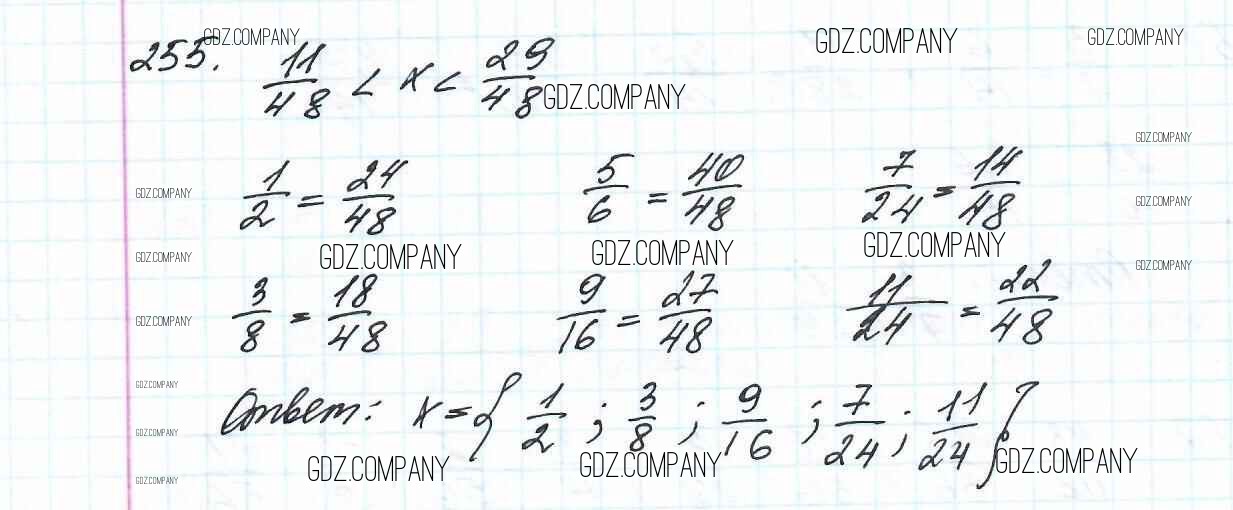 GDZ.COMPANY GDZ.COMPANY GDZ.COMPANY
255. 11/48 < x < 29/48 GDZ.COMPANY
GDZ.COMPANY
1/2 = 24/48 5/6 = 40/48 7/24 = 14/48
GDZ.COMPANY GDZ.COMPANY
GDZ.COMPANY GDZ.COMPANY GDZ.COMPANY
GDZ.COMPANY GDZ.COMPANY
3/8 = 18/48 9/16 = 27/48 11/24 = 22/48
GDZ.COMPANY
GDZ.COMPANY
Ответ: x = { 1/2 ; 3/8 ; 9/16 ; 7/24 ; 11/24 }
GDZ.COMPANY
GDZ.COMPANY GDZ.COMPANY GDZ.COMPANY
GDZ.COMPANY